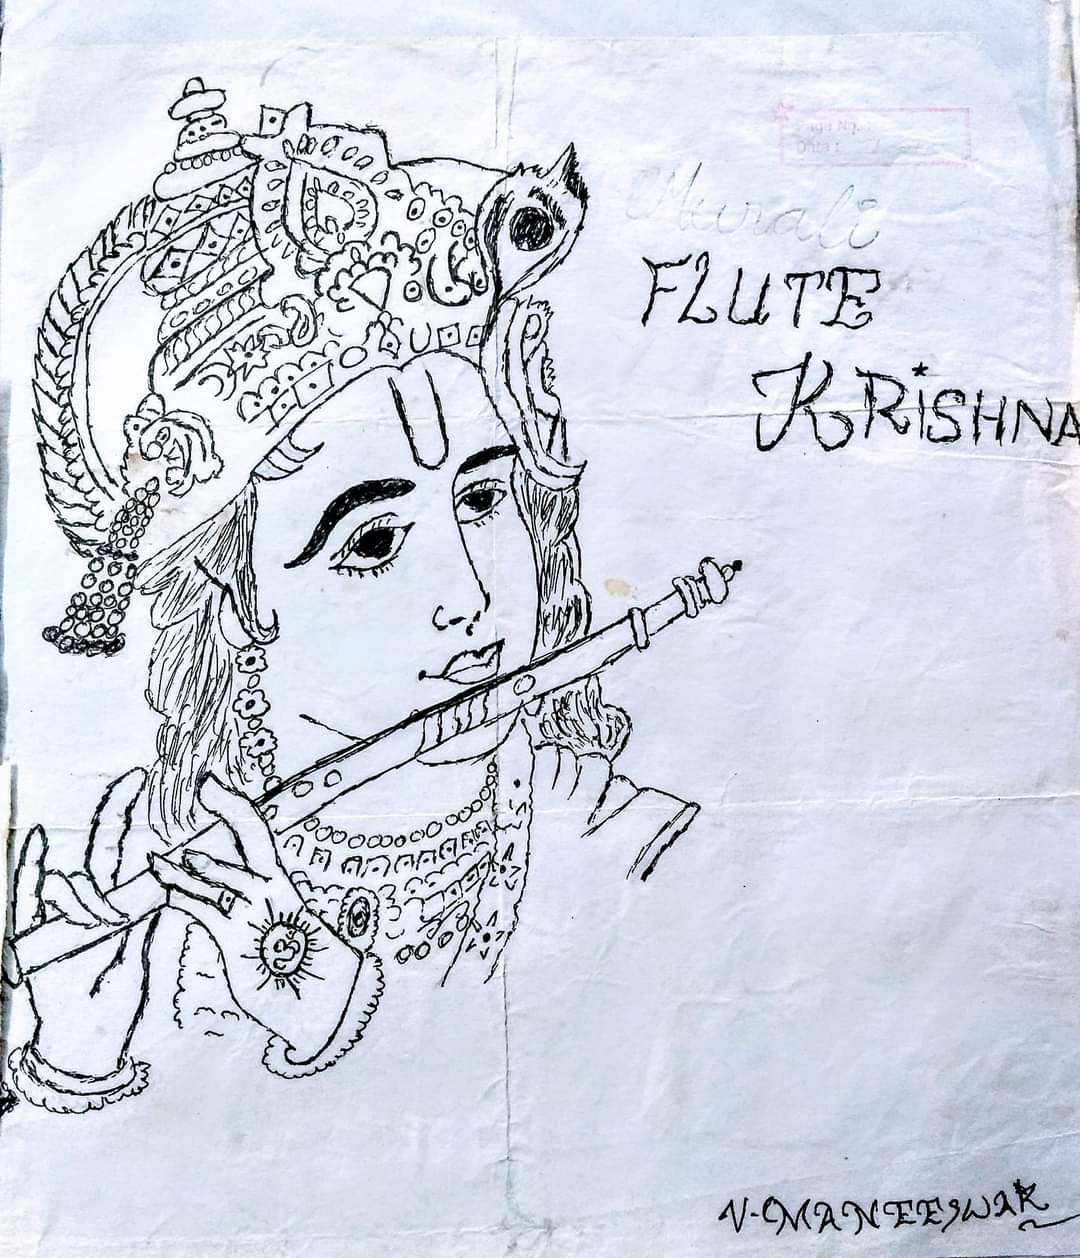 Page No.:
Date:
Murali
FLUTE
KRiSHNA
ॐ
V-MANEESWAR